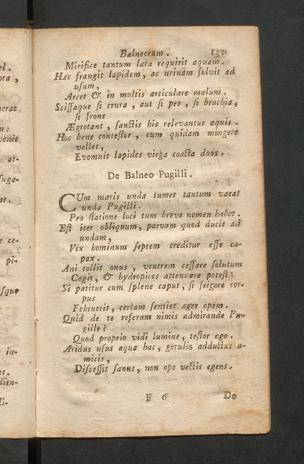 Balneorum. 131
Mirifice tantum lata requirit aquam.
Hac frangit lapidem, ac urinam solvit ad
usum,
Arcet & in multis articulare malum.
Scissaque si crura, aut si pes, si brachia,
si frons
Ægrotant, sanctis his relevantur aquis.
Hoc bene contestor, cum quidam mingere
vellet,
Evomuit lapides virga coacta duos.
De Balneo Pugilli.
CUm maris unda tumet tantum vacat
unda Pugilli.
Pro statione loci tum breve nomen habet.
Est iter obliquum, parvam quod ducit ad
undam,
Vix hominum septem creditur esse ca-
pax.
Ani tollit onus, ventrem cessare solutum
Cogit, & hydropicos attenuare potest:
Si patitur cum splene caput, si frigore cor-
pus
Februerit, certam sentiet ager opem.
Quid de te referam nimis admirande Pu-
gille?
Quod proprio vidi lumine, testor ego.
Aridus usus aqua hac, gerulis adductus a-
micis,
Discessit sanus, non ope vectis egens.
F 6 De